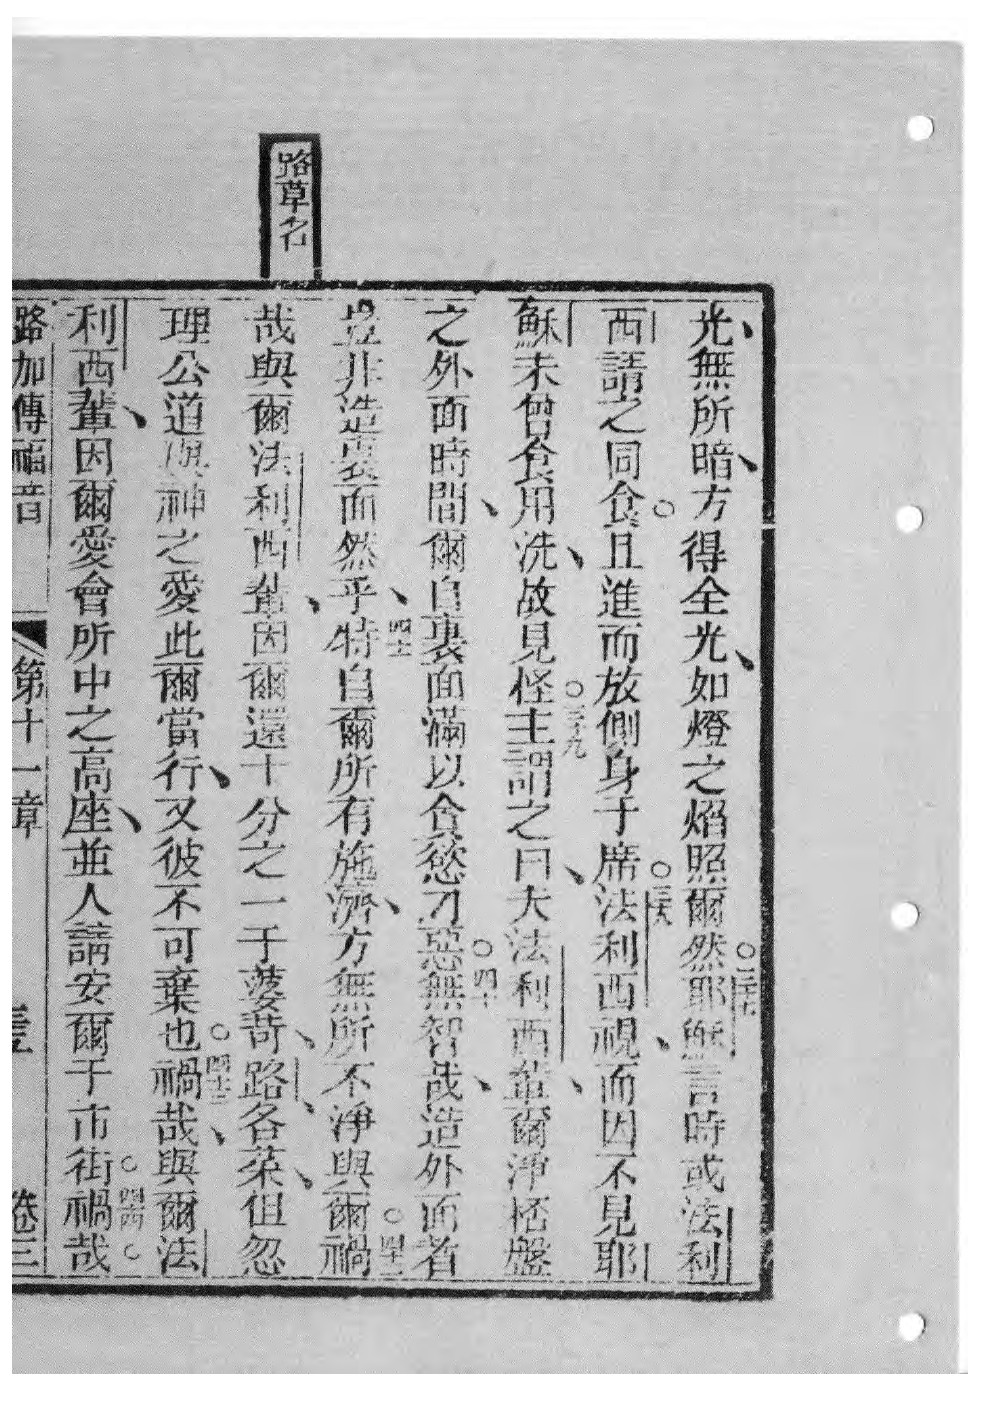 路草名
光無所暗方得全光如燈之焰照爾然耶穌言時或法利
三十七
西請之同食且進而放側身于席法利西視而因不見耶
三十八
穌未曾食用洗故見怪主謂之曰夫法利西輩爾淨桮盤
三十九
之外面時間爾自裏面滿以貪慾刁惡無智哉造外面者
四十
豈非造裏面然乎特自爾所有施濟方無所不淨與爾禍
四十一
四十二
哉與爾法利西輩因爾還十分之一于薆苛路各菜但忽
理公道與神之愛此爾當行又彼不可棄也禍哉與爾法
四十三
利西輩因爾愛會所中之高座並人請安爾于市街禍哉
四十四
路加傳福音 第十一章 卷三